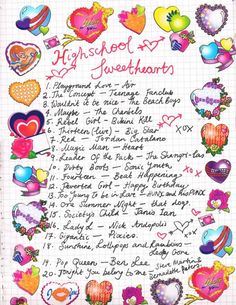 Highschool
Sweethearts
1. Playground Love - Air
2. The Concept - Teenage Fanclub
3. Wouldn't be nice - The Beach Boys
4. Maybe - The Chantels
5. Rebel Girl - Bikini Kill
6. Thirteen (live) - Big Star
XOX
7. Red - Jordan Catalano
8. Magic Man - Heart
9. Leader Of the Pack - The Shangri-Las
10. Dirty Boots - Sonic Youth
11. Fourteen - Beat Happening
12. Perverted Girl - Happy Birthday
13. Too Young To be in Love - Hunx and His Punx
14. One Summer Night - that dog.
15. Society's Child - Janis Ian
16. Lady L - Nick Andopolis
17. Gigantic - Pixies
18. Sunshine, Lollipops and Rainbows -
Lesley Gore
19. Pop Queen - Ben Lee
20. Tonight You belong to me
Steve Martin &
Bernadette Peters